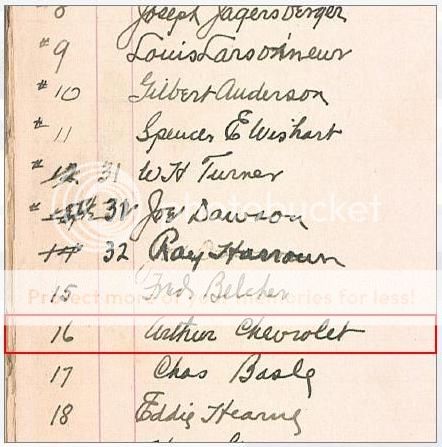 8 Joseph Jagersberger
#9 Louis Larsonneur
#10 Gilbert Anderson
#11 Spencer E Wishart
#12 31 W H Turner
# 31 Joe Dawson
14 32 Ray Harroun
15 Fred Belcher
16 Arthur Chevrolet
17 Chas Basle
18 Eddie Hearne
photobucket
Protect more of your memories for less!